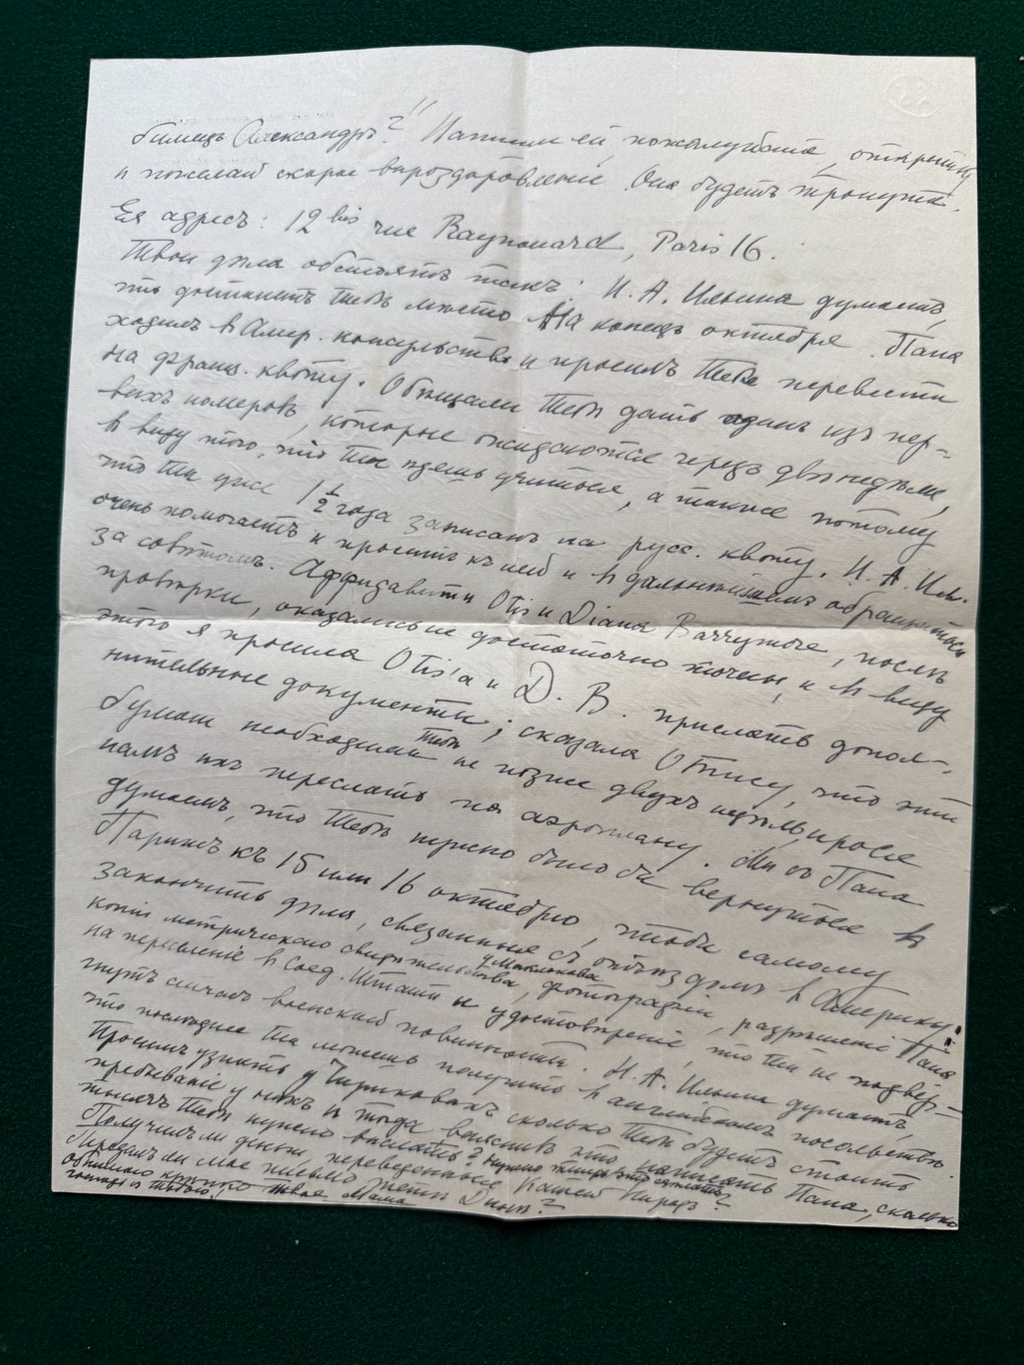 бимецъ Александръ?" Напиши ей, пожалуйста, открытку
и пожелай скораго выздоровленія. Она будетъ тронута.
Ея адресъ: 12 bis rue Raynouard, Paris 16.
Твои дѣла обстоятъ такъ: И. А. Ильина думаетъ,
что достанетъ Тебѣ мѣсто на конецъ октября. Папа
ходилъ въ Амер. консульство и просилъ Тебя перевести
на франц. квоту. Обѣщали Тебѣ дать одинъ изъ пер-
выхъ номеровъ, которые ожидаются черезъ двѣ недѣли,
въ виду того, что Ты ѣдешь учиться, а также потому
что Ты уже 1½ года записанъ на русс. квоту. И. А. Ил.
очень помогаетъ и проситъ къ ней и въ дальнѣйшемъ обращаться
за совѣтомъ. Аффидавиты Otis и Diana Barrymore, послѣ
провѣрки, оказались не достаточно точны, и въ виду
этого я просила Otis'a и D. B. прислать допол-
нительные документы; сказала Отису, что эти
бумаги необходимы Тебѣ не позже двухъ недѣль, прося
намъ ихъ переслать по аэроплану. Мы съ Папа
думаемъ, что Тебѣ нужно было бы вернуться въ
Парижъ къ 15 или 16 октября, чтобы самому
закончить дѣла, связанныя съ отъѣздомъ въ Америку:
копія метрическаго свидѣтельства, фотографіи, разрѣшеніе Папа
у Маклакова
на переселеніе въ Соед. Штаты и удостовѣреніе, что Ты не подвер-
гнутъ воинской повинности. И. А. Ильина думаетъ,
что последнее Ты можешь получить въ англійскомъ посольствѣ.
Просимъ узнать у Чириковыхъ сколько Тебѣ будетъ стоить
пребываніе у нихъ и тогда написать Папа, сколько
Тебѣ нужно выслать?
Получилъ ли деньги, переведенные Катей
Передалъ ли мое письмо тети Дины?
Твоя Мама